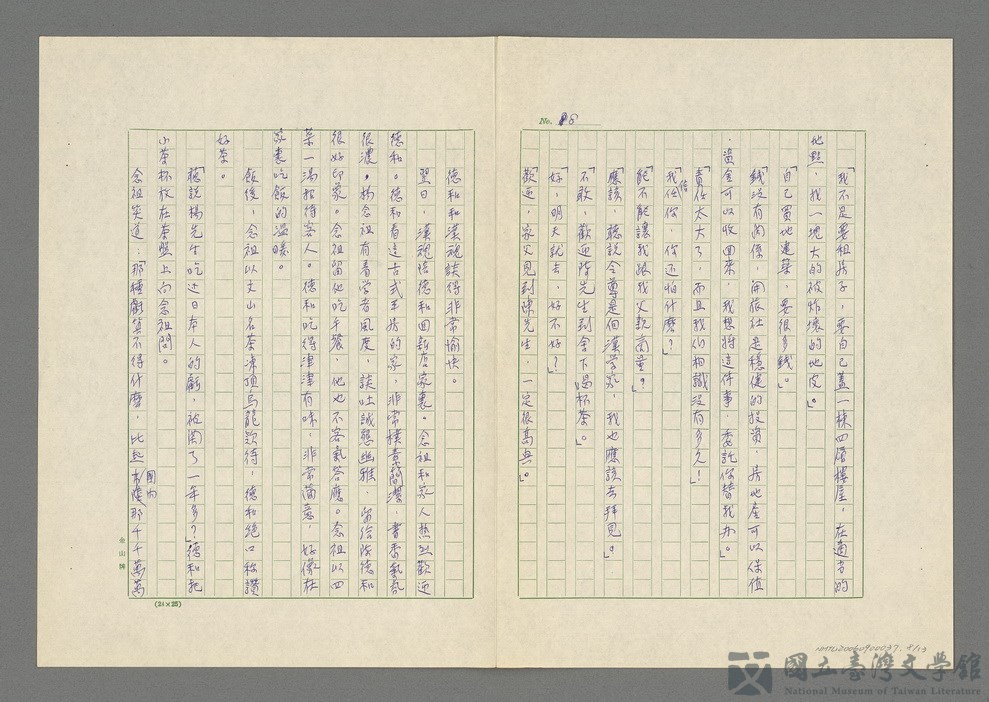 No. 88
「我不是要租房子，要自己蓋一棟四層樓屋，在適當的
地點，找一塊大的被炸壞的地皮。」
「自己買地建築，要很多錢。」
「錢沒有關係，開旅社是穩健的投資，房地產可以保值
，資金可以收回來，我想將這件事，委託你替我办。」
「責任太大了，而且我们相識沒有多久！」
「我信任你，你还怕什麼？」
「能不能讓我跟我父親商量？」
「應該，聽說令尊是個漢学家，我也應該去拜見。」
「不敢，歡迎陳先生到舍下喝杯茶。」
「好，明天就去，好不好？」
「歡迎，家父見到陳先生，一定很高興。」
德和和漢魂談得非常愉快。
翌日，漢魂陪德和回新店家裏。念祖和家人熱烈歡迎
德和。德和看這古式平房的家，非常樸素簡潔，書香氣氛
很濃，楊念祖有着学者風度，談吐誠懇幽雅，留給陳德和
很好印象。念祖留他吃午餐，他也不客氣答應。念祖以四
菜一湯招待客人。德和吃得津津有味，非常滿意，好像在
家裏吃飯的溫暖。
飯後，念祖以文山名茶凍頂烏龍欵待，德和絶口称讚
好茶。
「聽說楊先生吃过日本人的虧，被関了一年多？」德和把
小茶杯放在茶盤上向念祖問。
念祖笑道：「那種虧算不得什麼，比起國內那千千萬萬
金山牌
(24×25)
NMTL20060900037. 8/13
國立臺灣文學館
National Museum of Taiwan Literature